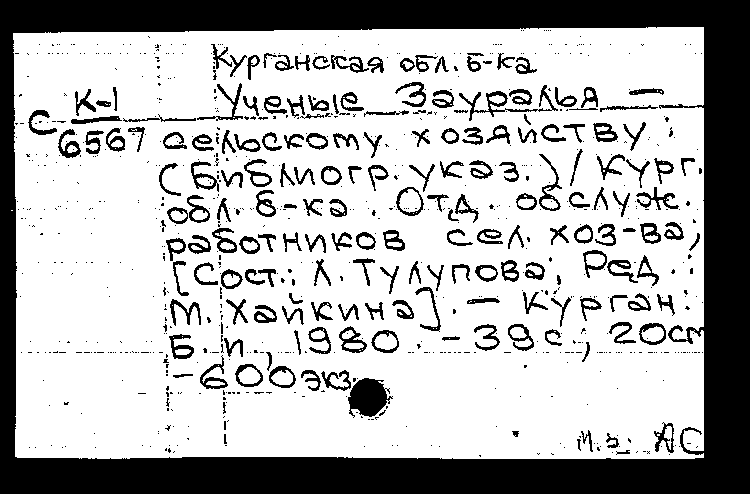 Курганская обл. б-ка
К-1
Ученые Зауралья —
С
6567
сельскому хозяйству :
(Библиогр. указ.) / Кург.
обл. б-ка. Отд. обслуж.
работников сел. хоз-ва;
[Сост.: Л. Тулупова; Ред.:
М. Хайкина]. — Курган:
Б. и., 1980. - 39 с.; 20см
- 600 экз.
АС